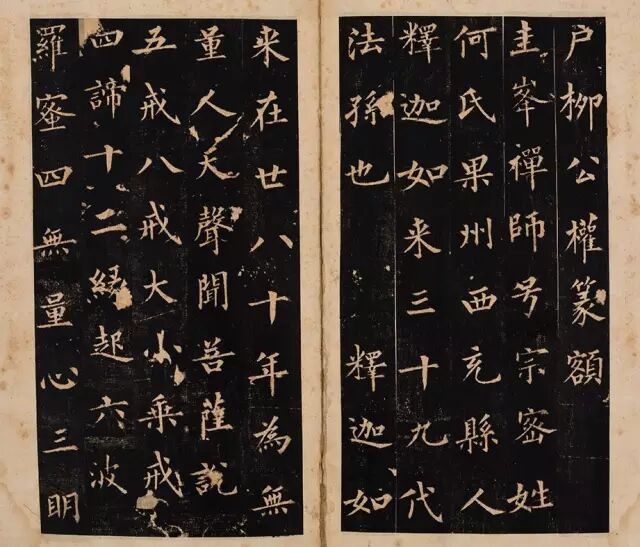 户柳公權篆額
圭峯禪師号宗密姓
何氏果州西充縣人
釋迦如来三十九代
法孫也　釋迦如
来在世八十年為無
量人天聲聞菩薩說
五戒八戒大小乘戒
四諦十二緣起六波
羅蜜四無量心三明